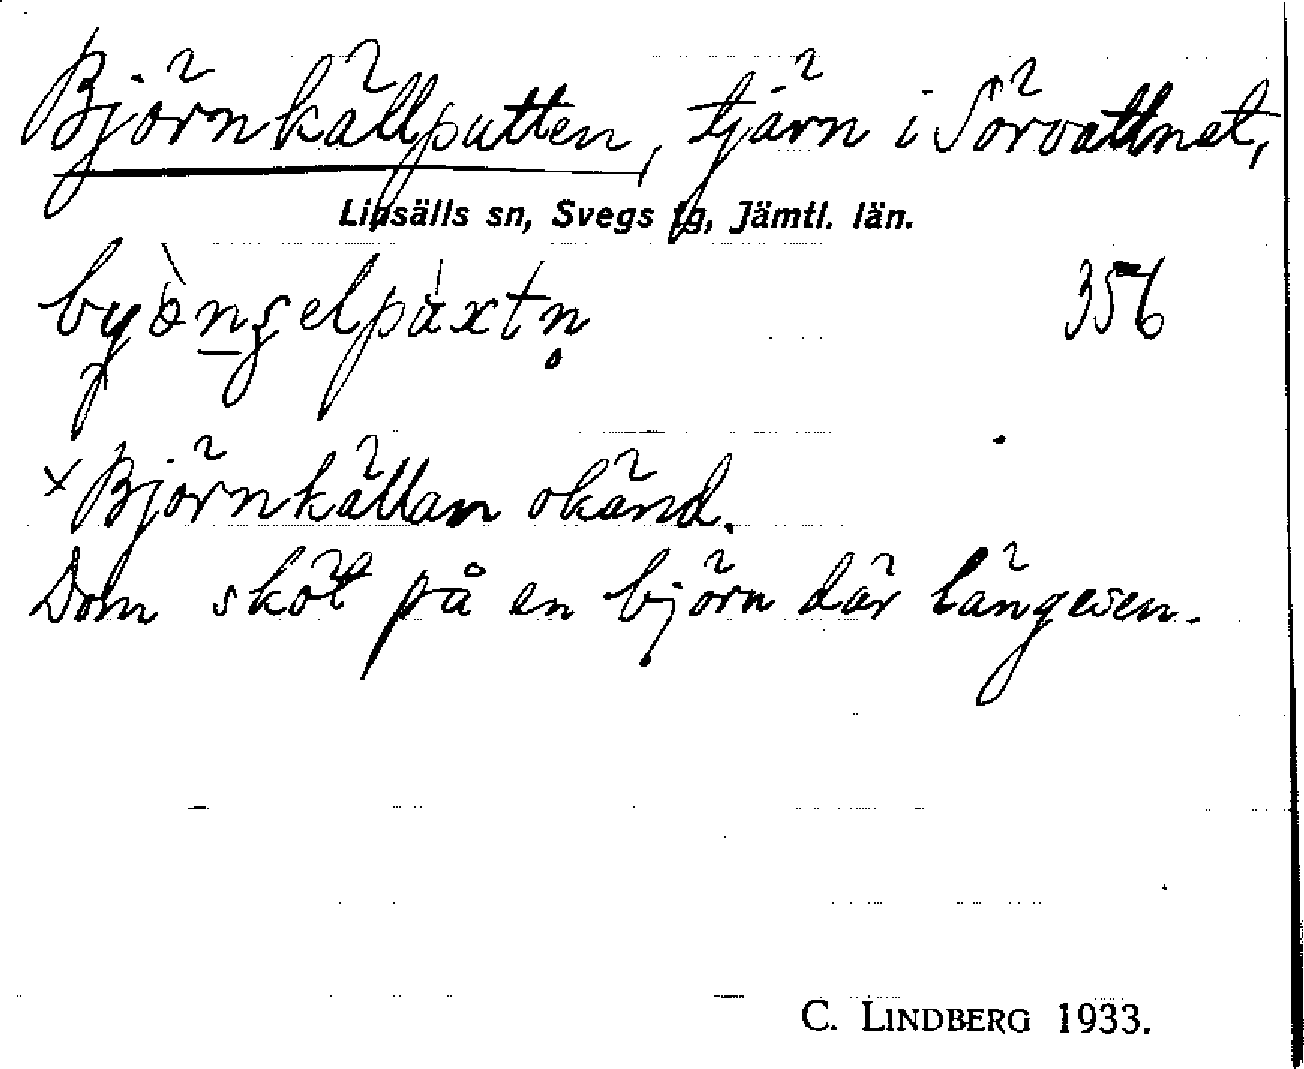 Björnkällputten, tjärn i Sörvattnet,
Linsälls sn, Svegs tg, Jämtl. län.
356
×Björnkällan okänd.
Dom sköt på en björn där längesen.
C. LINDBERG 1933.